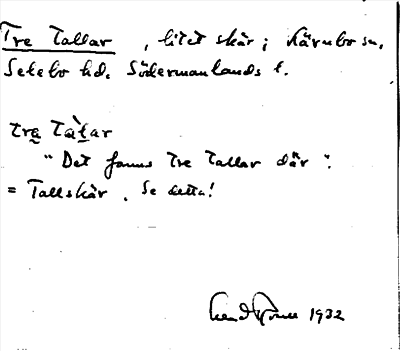 Tre Tallar, litet skär i Kärnbo sn,
Selebo hd. Södermanlands l.
tre tàlar
"Det fanns tre tallar där".
= Tallskär. Se detta!
1932